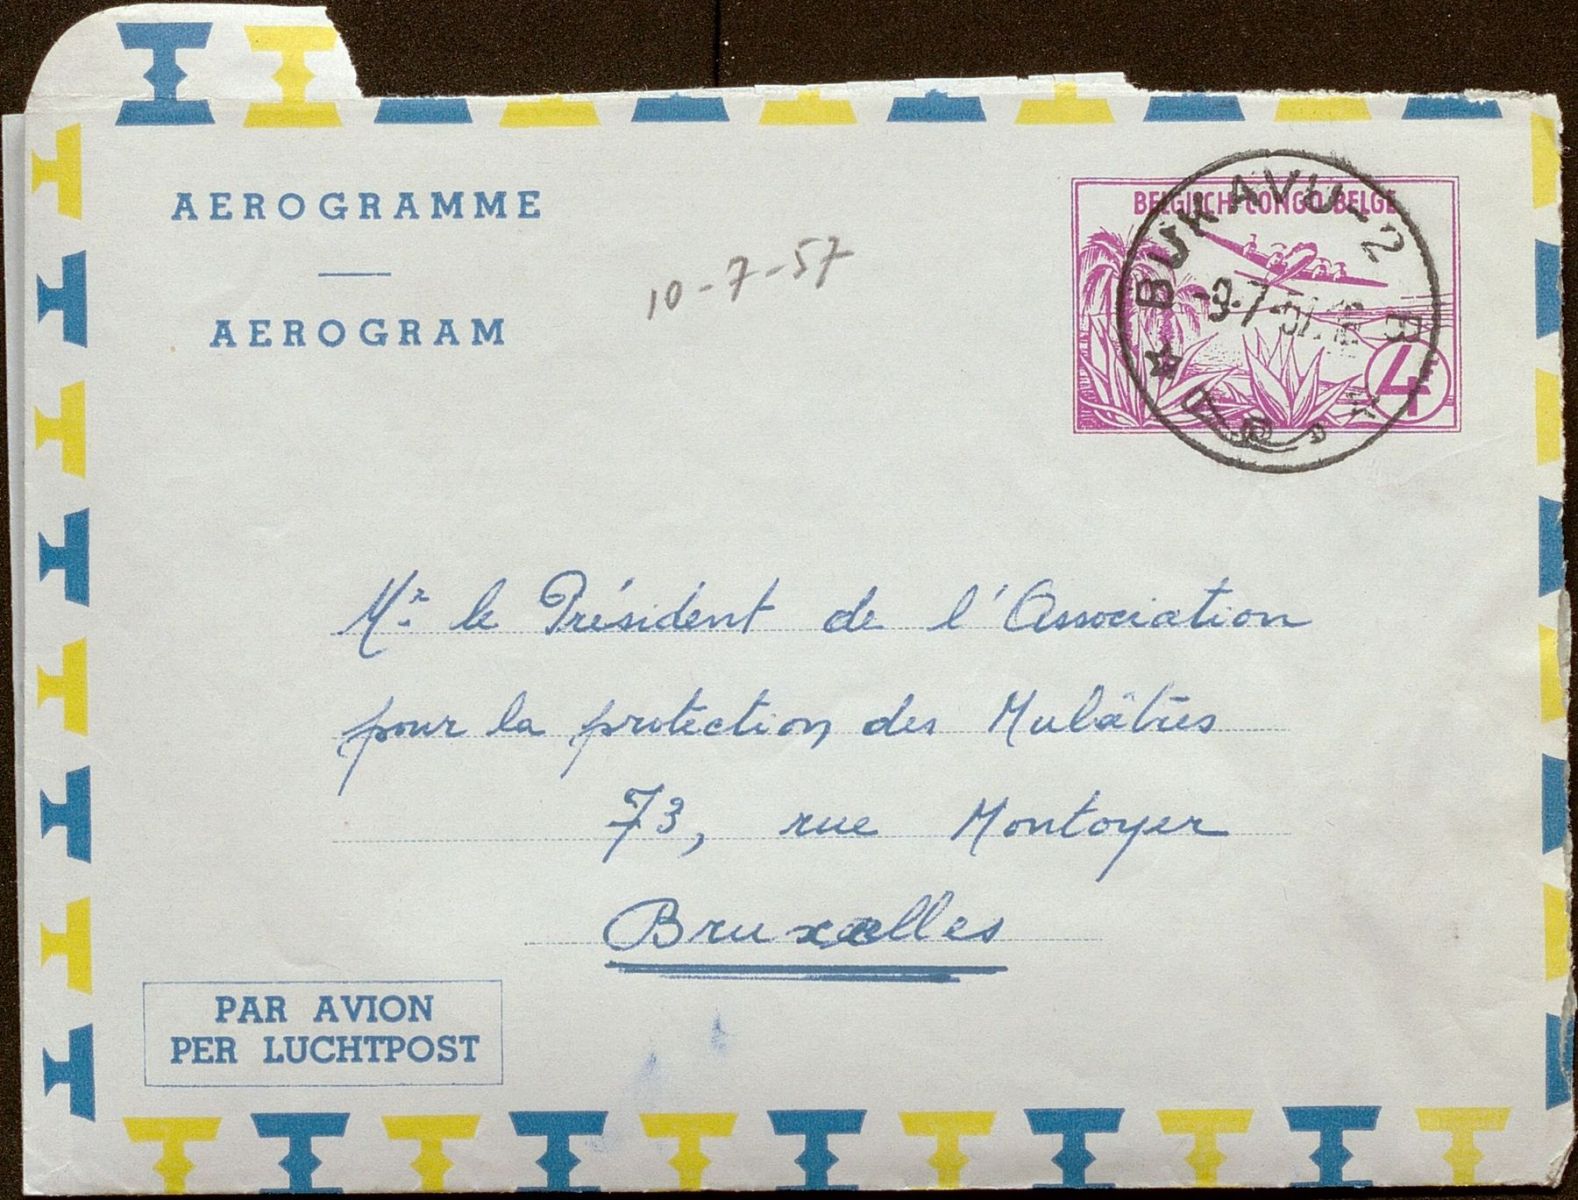 AEROGRAMME
AEROGRAM
10-7-57
BELGISCH CONGO BELGE
BUKAVU-2
-9-7-57
B
4
Mr. le Président de l'Association
pour la protection des Mulâtres
73, rue Montoyer
Bruxelles
PAR AVION
PER LUCHTPOST